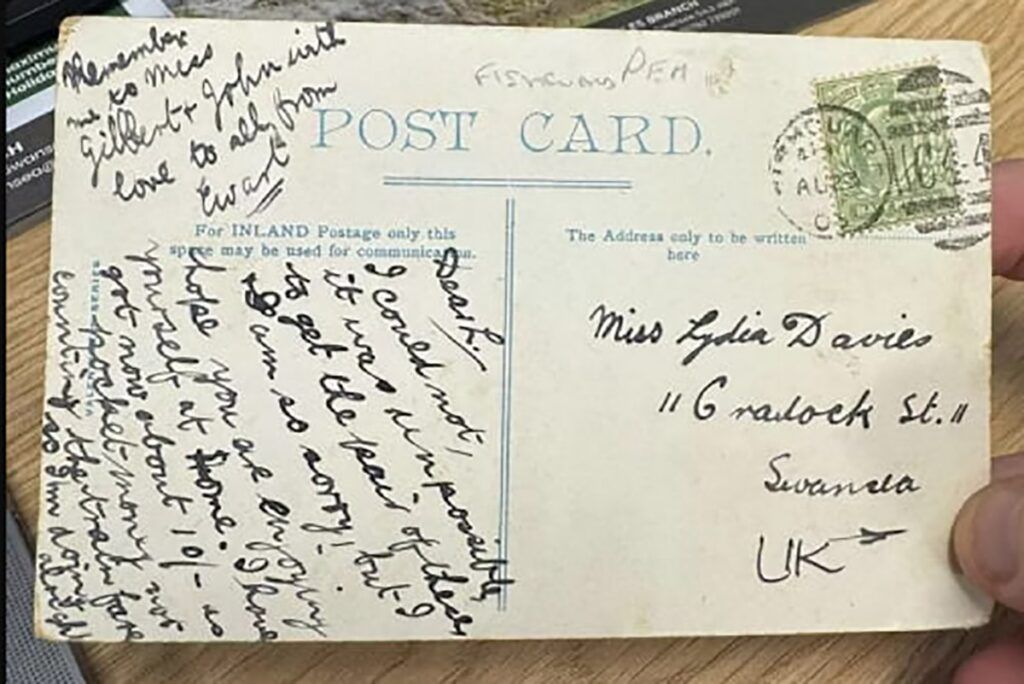 Remember
me to miss
Gilbert & John with
love to all, from
Ewart
FISHGUARD PEM
POST CARD.
For INLAND Postage only this
space may be used for communication.
The Address only to be written
here
Dear L.
I could not,
it was unpossible,
to get the pair of these
& I am so sorry! but I
hope you are enjoying
yourself at home. I have
got now about 10/- as
pocket-money nor
counting the train fare
so I'm doing
alright
Miss Lydia Davies
11 Cradock St.
Swansea
UK
BRANCH